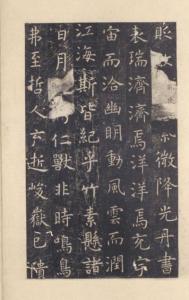 微降光丹書
表瑞濟濟焉洋洋焉充宇
宙而洽幽明動風雲而潤
江海斯皆紀乎竹素懸諸
日月仁獸非時鳴鳥
弗至哲人云逝峻嶽已隤